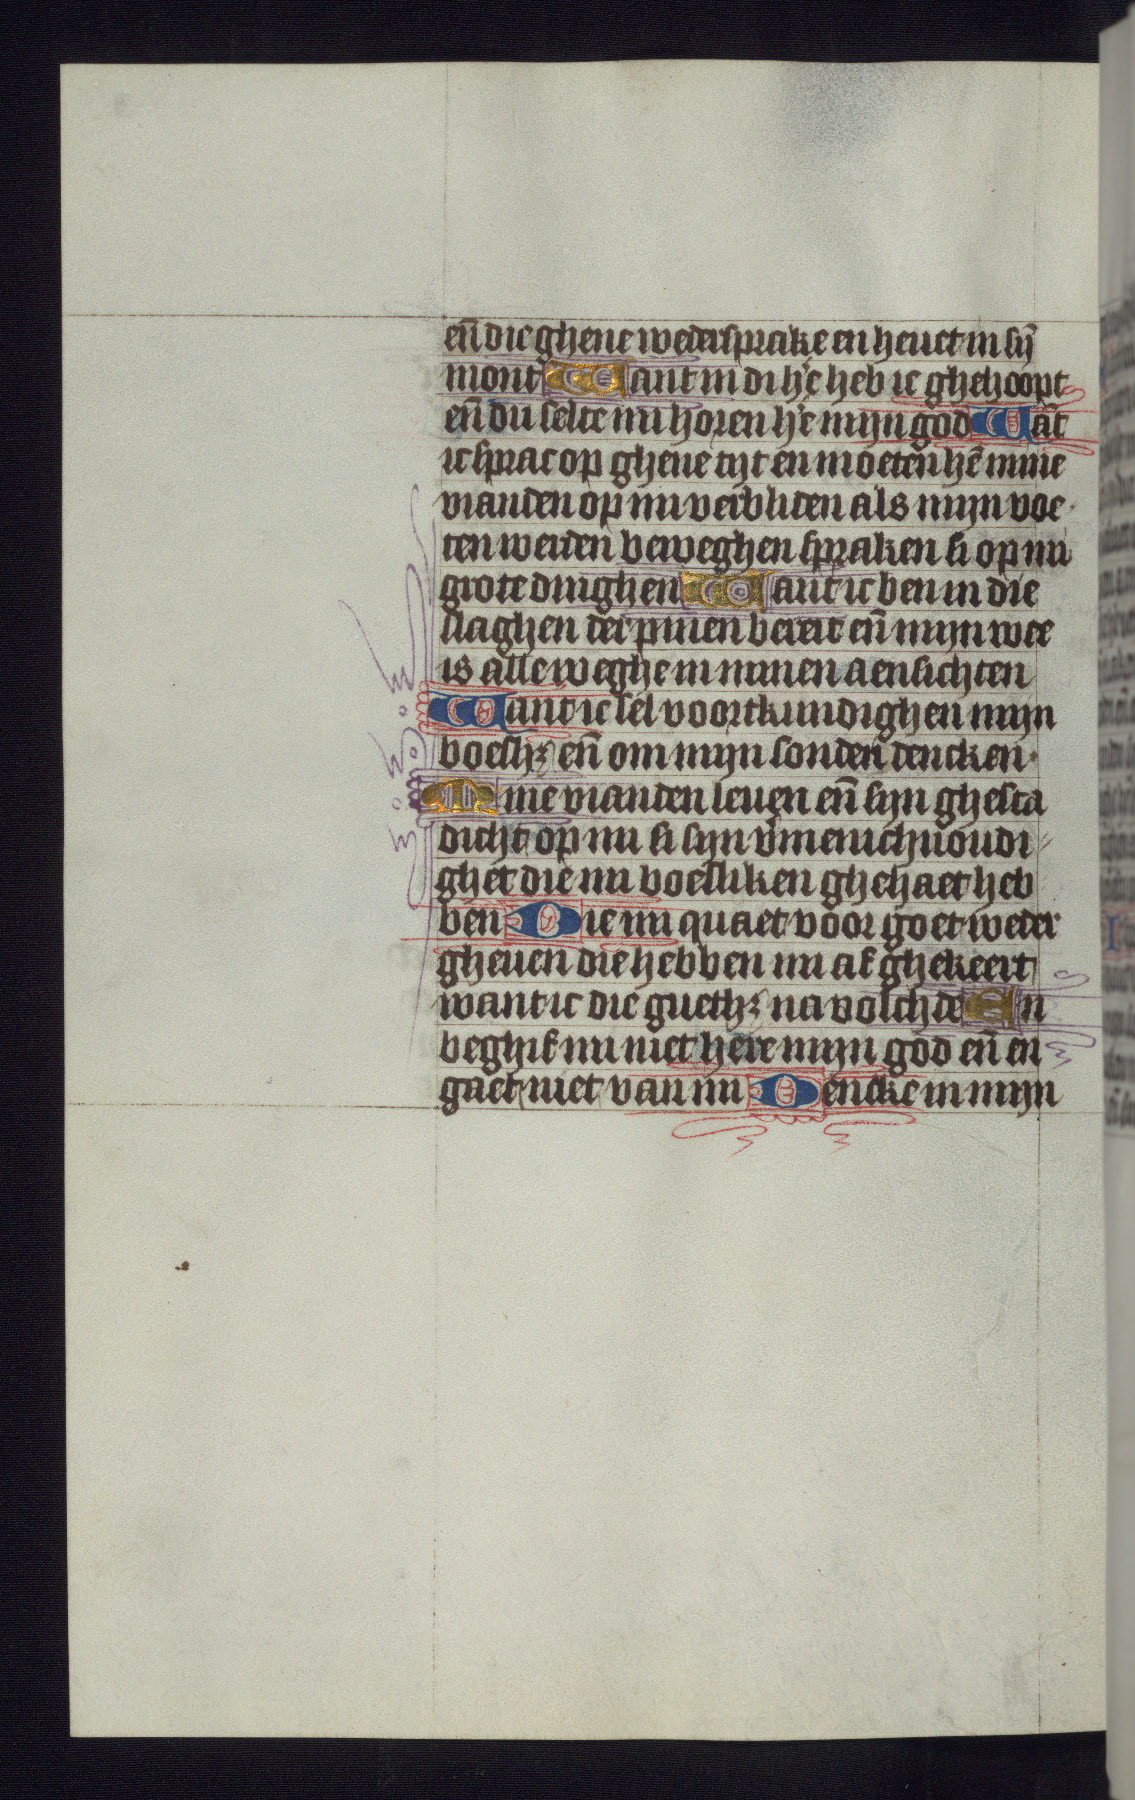 en̄ die ghene wedersprake en heuet in sȳ
mont Want in di h'e heb ic ghehoopt
en̄ du selte mi horen h'e mijn god Wāt
ic sprac op ghene tijt en moeten hē mine
vianden op mi verbliden als mijn voe
ten werden beweghen spraken si op mi
grote dinghen Want ic ben in die
slaghen der pinen bereit en̄ mijn wee
is alleweghe in minen aensichten
Want ic sel voortkundighen mijn
boesh₃ en̄ om mijn sonden dencken
Mine vianden leuen en̄ sijn ghesta
dicht op mi si sijn v'menichuoudi
ghet die mi boesliken ghehaet heb
ben Die mi quaet voor goet weder
gheuen die hebben mi af ghekeert
want ic die gueth₃ na volchde En
beghif mi niet here mijn god en̄ en
gaet niet van mi Dencke in mijn